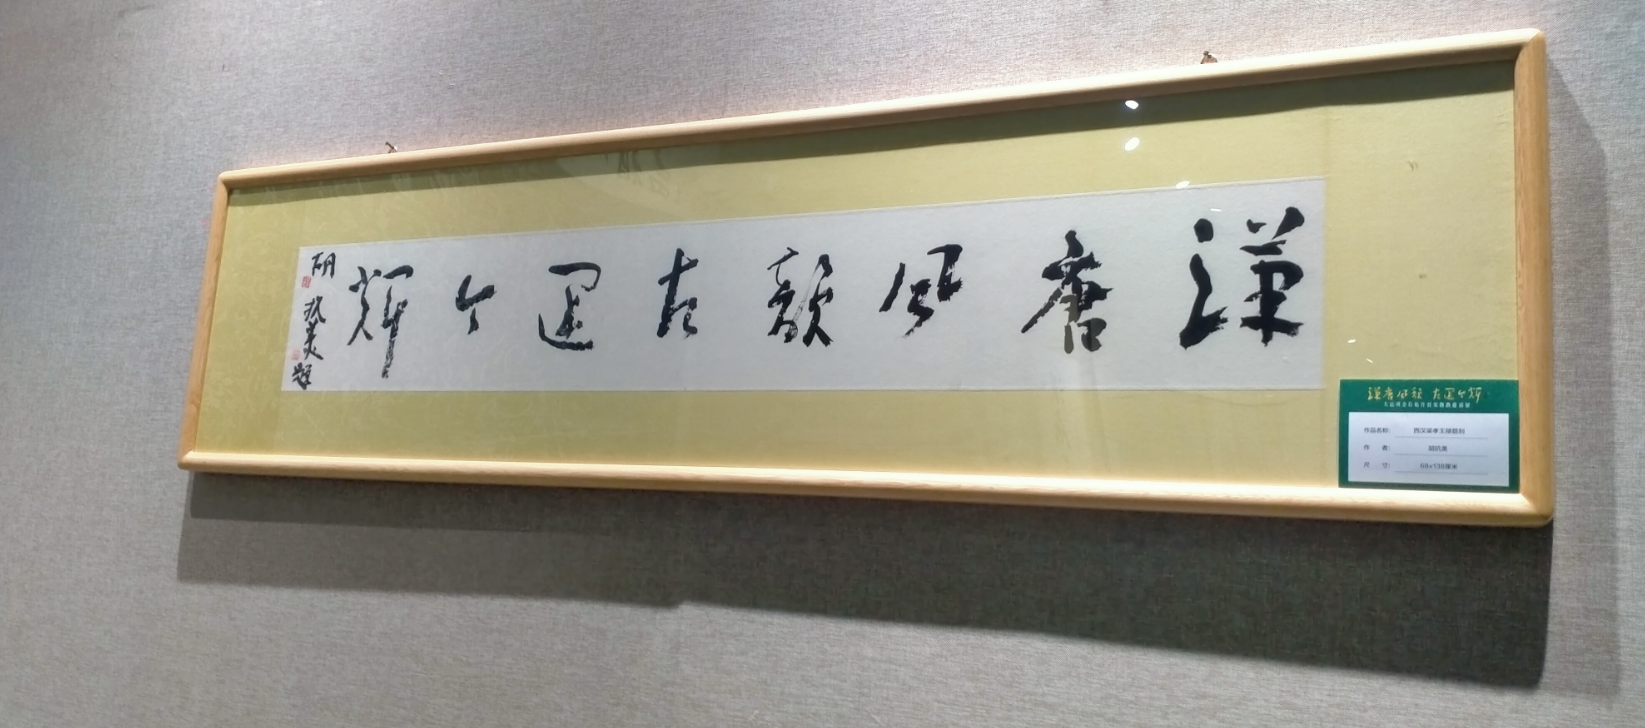 漢唐風韻古運今輝
胡抗美題
漢唐風韻 古運今輝
作品名称: 西汉梁孝王陵题刻
作 者: 胡抗美
尺 寸: 68×138厘米